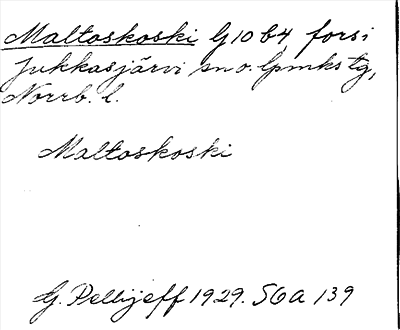 Maltoskoski G 10 b 4 fors i
Jukkasjärvi sn o. lpmks tg,
Norrb. l.
Maltoskoski
G. Pellijeff 1929. SOA 139